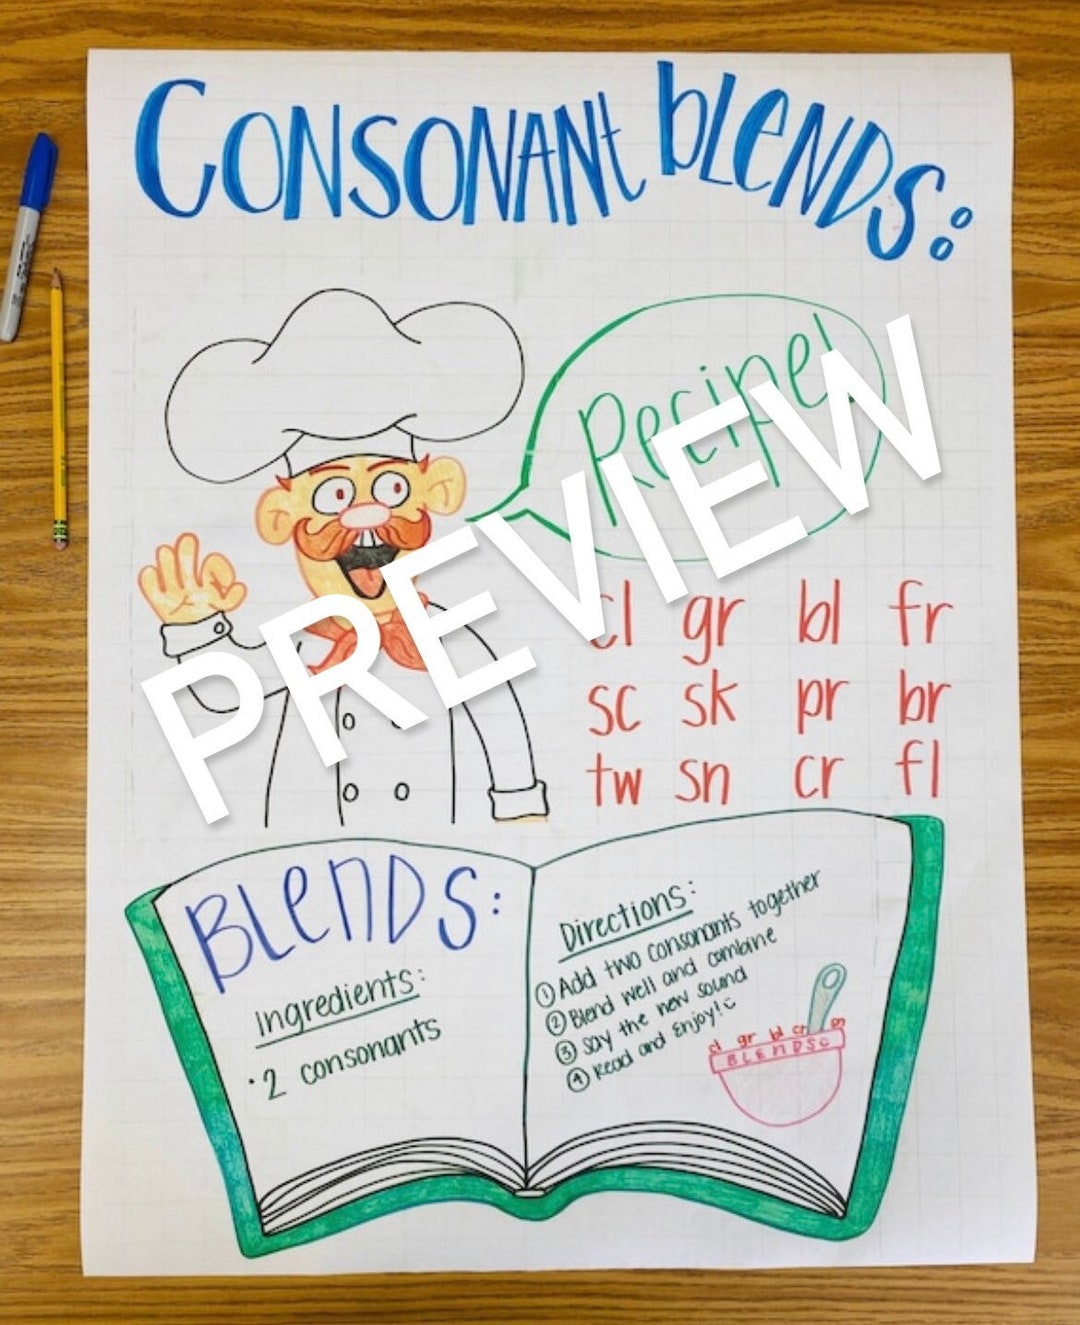 CONSONANT bLeNDS:
Recipe!
PREVIEW
cl gr bl fr
sc sk pr br
tw sn cr fl
BLenDS:
Ingredients:
· 2 consonants
Directions:
① Add two consonants together
② Blend well and combine
③ say the new sound
④ Read and Enjoy!
cl gr bl cr sn
BLENDS